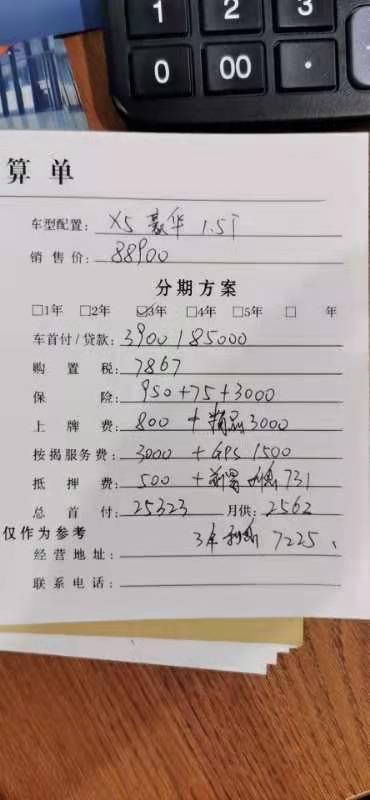 1 2 3
0 00 ·
算 单
车型配置: X5 豪华 1.5T
销 售 价: 88900
分期方案
□1年 □2年 ☑3年 □4年 □5年 □ 年
车首付/贷款: 3900 / 85000
购 置 税: 7867
保 险: 950+75+3000
上 牌 费: 800 + 精品 3000
按揭服务费: 3000 + GPS 1500
抵 押 费: 500 + 前置利息 731
总 首 付: 25323 月供: 2562
仅作为参考 3年利息 7225、
经营地址:
联系电话: